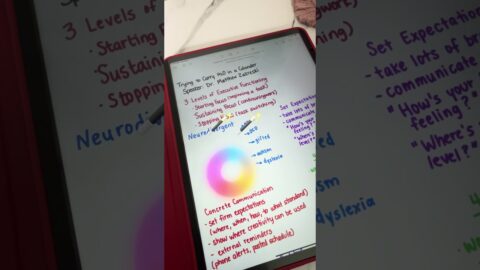 Trying to Carry H2O in a Colander
Speaker: Dr. Matthew Zakreski
3 Levels of Executive Functioning
Starting Focus (beginning a task)
Sustaining Focus
Stopping Focus (task switching)
Neurodivergent
→ OCD
→ gifted
→ autism
→ dyslexia
Concrete Communication
- Set firm expectations
(where, when, how, to what standard)
- show where creativity can be used
- external reminders
(phone alerts, posted schedule)
Set Expectations
- take lots of
- communicate
"How's your
feeling?"
"Where's
level?"
3 Levels of
• Starting
Sustaini
• Stopping
Neurod
Set Expectation
- take lots of br
- communicate
"How's you
feeling?"
"Where's
level?"
dyslexia